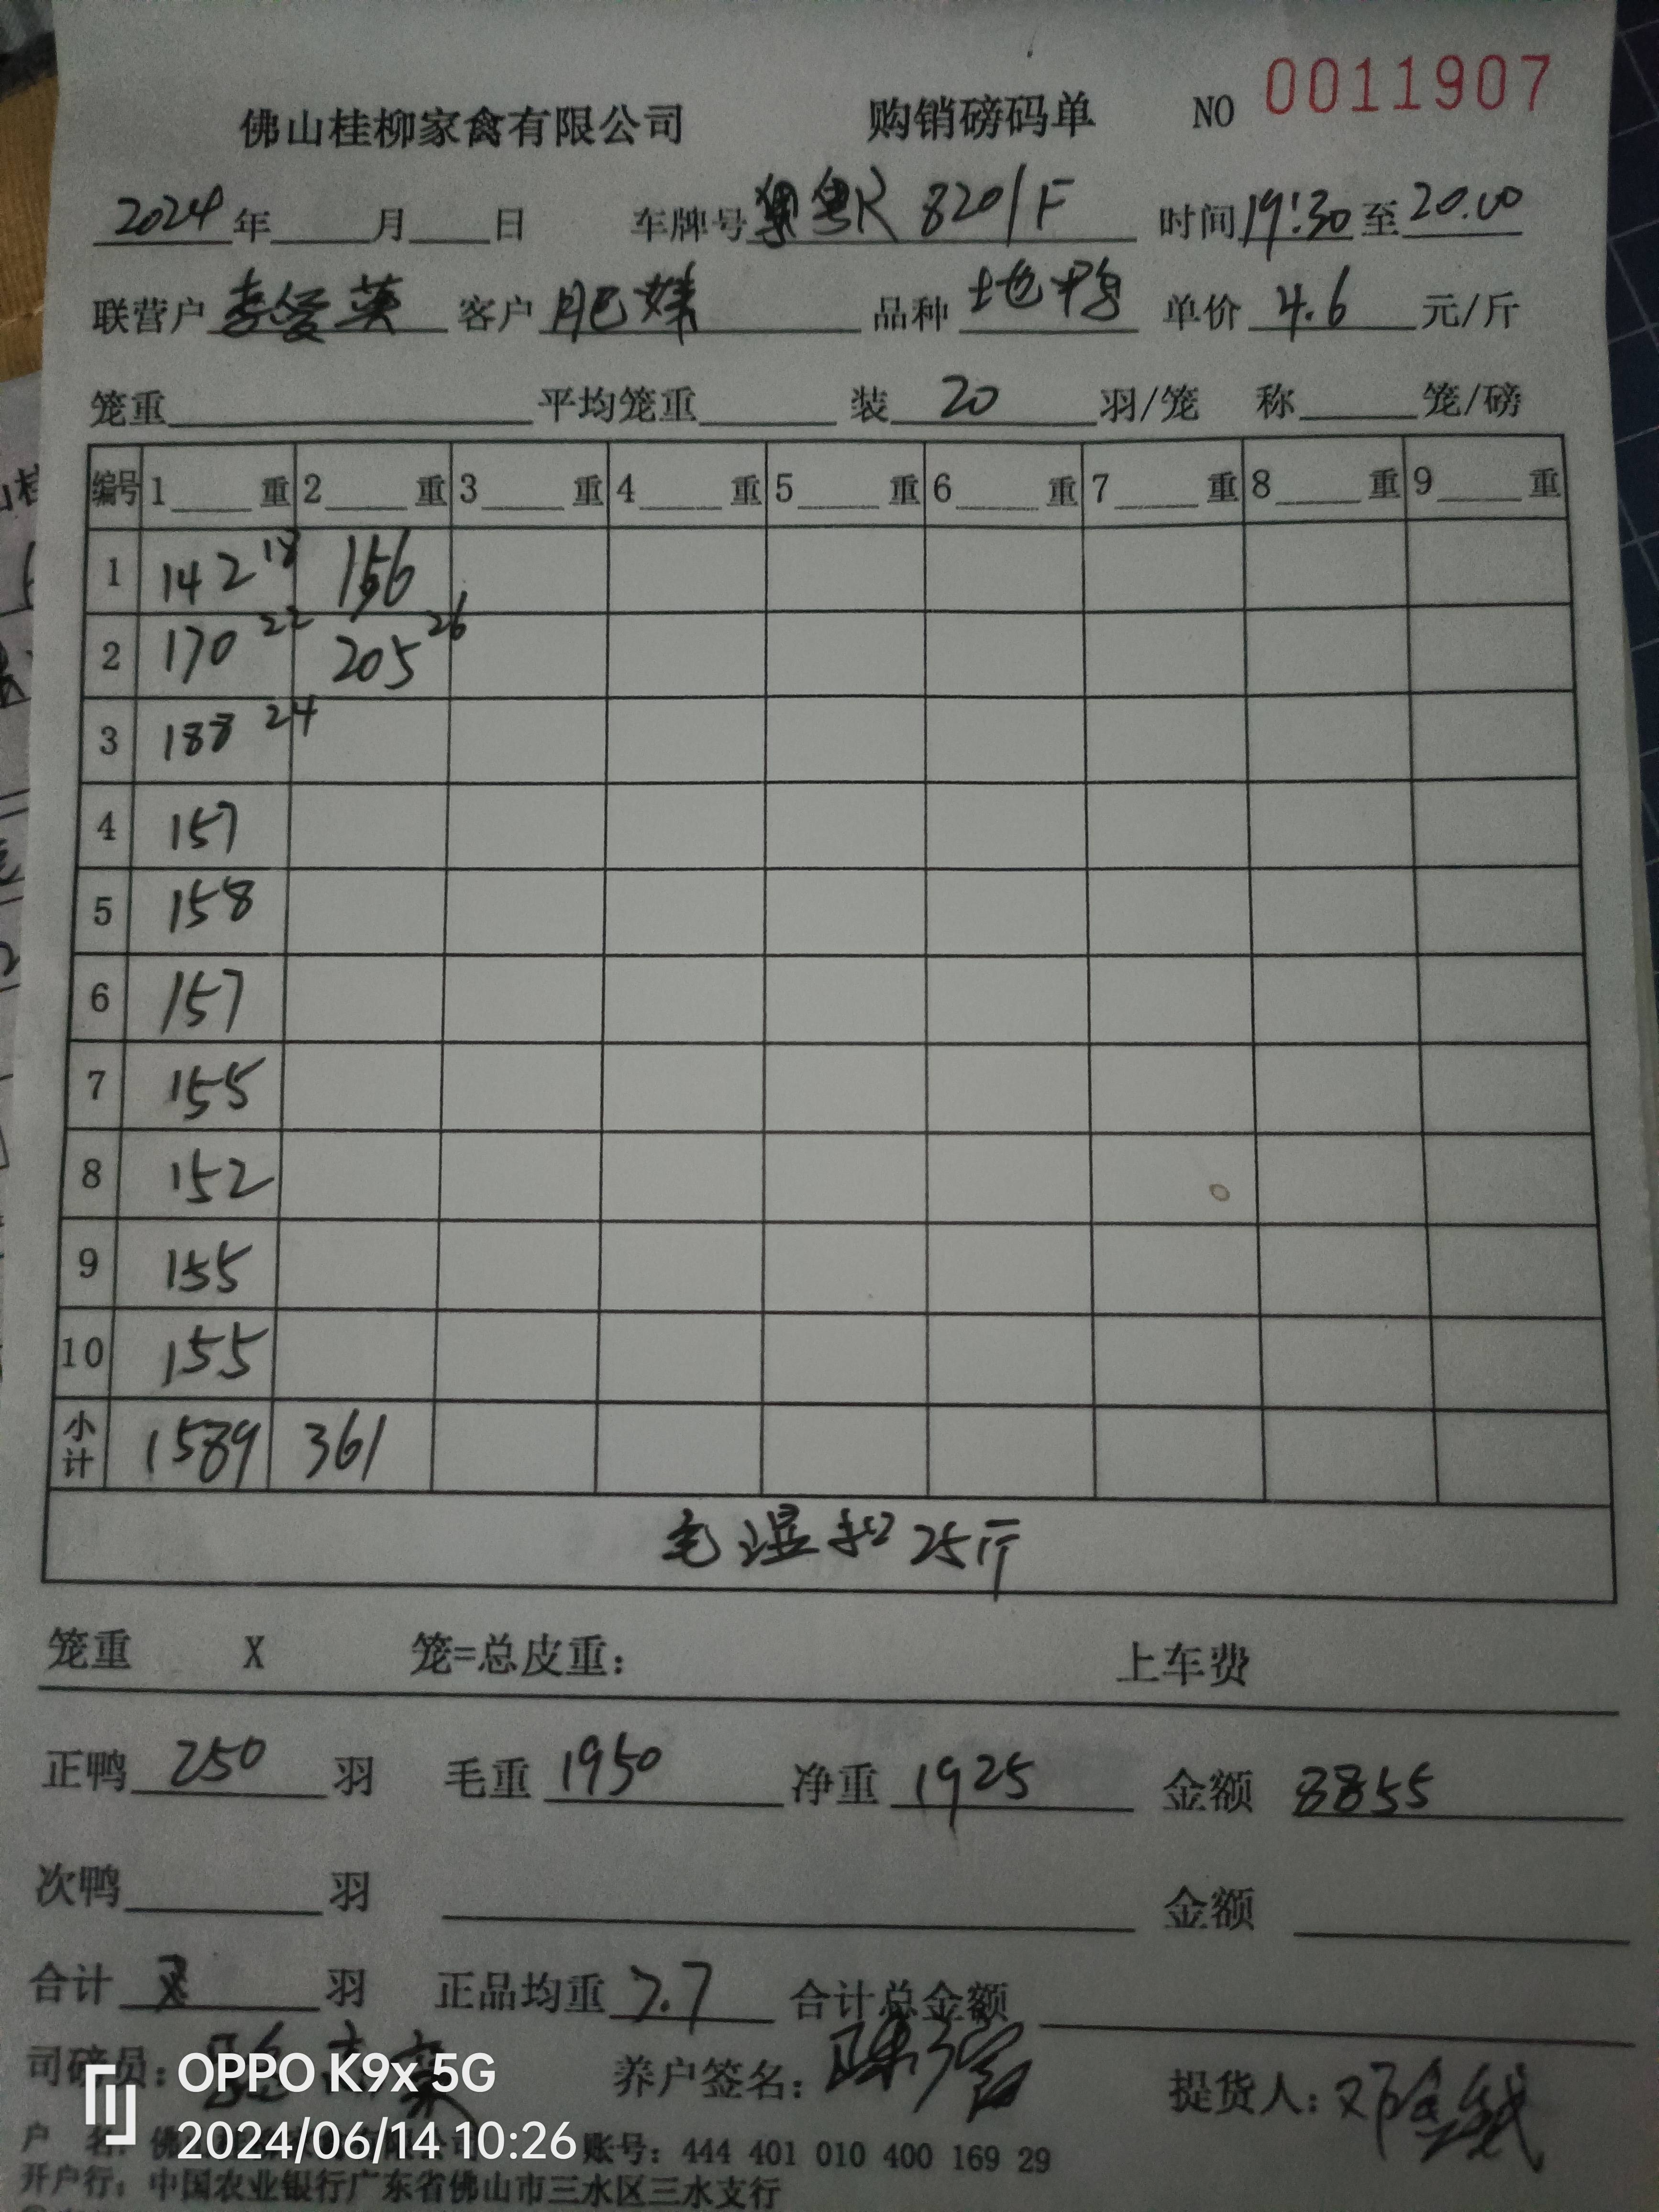 佛山桂柳家禽有限公司 购销磅码单 NO 0011907
2024年 月 日 车牌号 粤R 8201F 时间19:30至20.00
联营户 李爱英 客户 肥妹 品种 地鸭 单价 4.6 元/斤
笼重 平均笼重 装 20 羽/笼 称 笼/磅
编号 1 重 2 重 3 重 4 重 5 重 6 重 7 重 8 重 9 重
1 142 18 156
2 170 22 205 26
3 188 24
4 157
5 158
6 157
7 155
8 152
9 155
10 155
小计 1589 361
毛湿扣25斤
笼重 X 笼=总皮重: 上车费
正鸭 250 羽 毛重 1950 净重 1925 金额 8855
次鸭 羽 金额
合计 羽 正品均重 7.7 合计总金额
司磅员: 养户签名: 提货人:
OPPO K9x 5G
2024/06/14 10:26
户 名: 佛 账号: 444 401 010 400 169 29
开户行: 中国农业银行广东省佛山市三水区三水支行